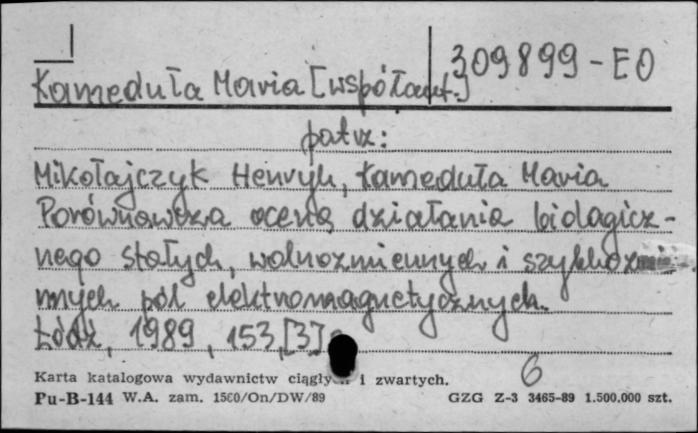 309899-EO
Kameduła Maria [współaut.]
patrz:
Mikołajczyk Henryk, Kameduła Maria
Porównawcza ocena działania biologicz-
nego stałych, wolnozmiennych i szybkozmien
nnych pól elektromagnetycznych.
Łódź, 1989, 153,[3]
6
Karta katalogowa wydawnictw ciągłych i zwartych.
Pu-B-144 W.A. zam. 1560/On/DW/89 GZG Z-3 3465-89 1.500.000 szt.